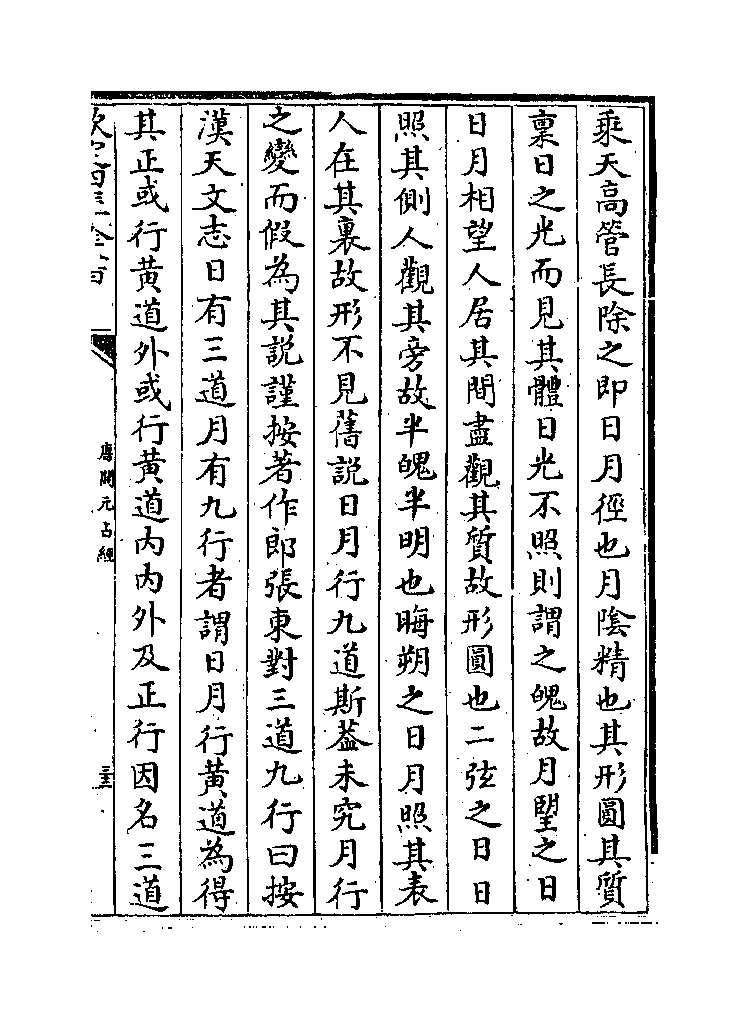 乘天高管長除之即日月徑也月隂精也其形圓其質
稟日之光而見其體日光不照則謂之魄故月朢之日
日月相望人居其間盡觀其質故形圓也二弦之日日
照其側人觀其旁故半魄半明也晦朔之日月照其表
人在其裏故形不見舊説日月行九道斯葢未究月行
之變而假為其説謹按著作郎張東對三道九行曰按
漢天文志日有三道月有九行者謂日月行黄道為得
其正或行黄道外或行黄道内内外及正行因名三道
唐開元占經